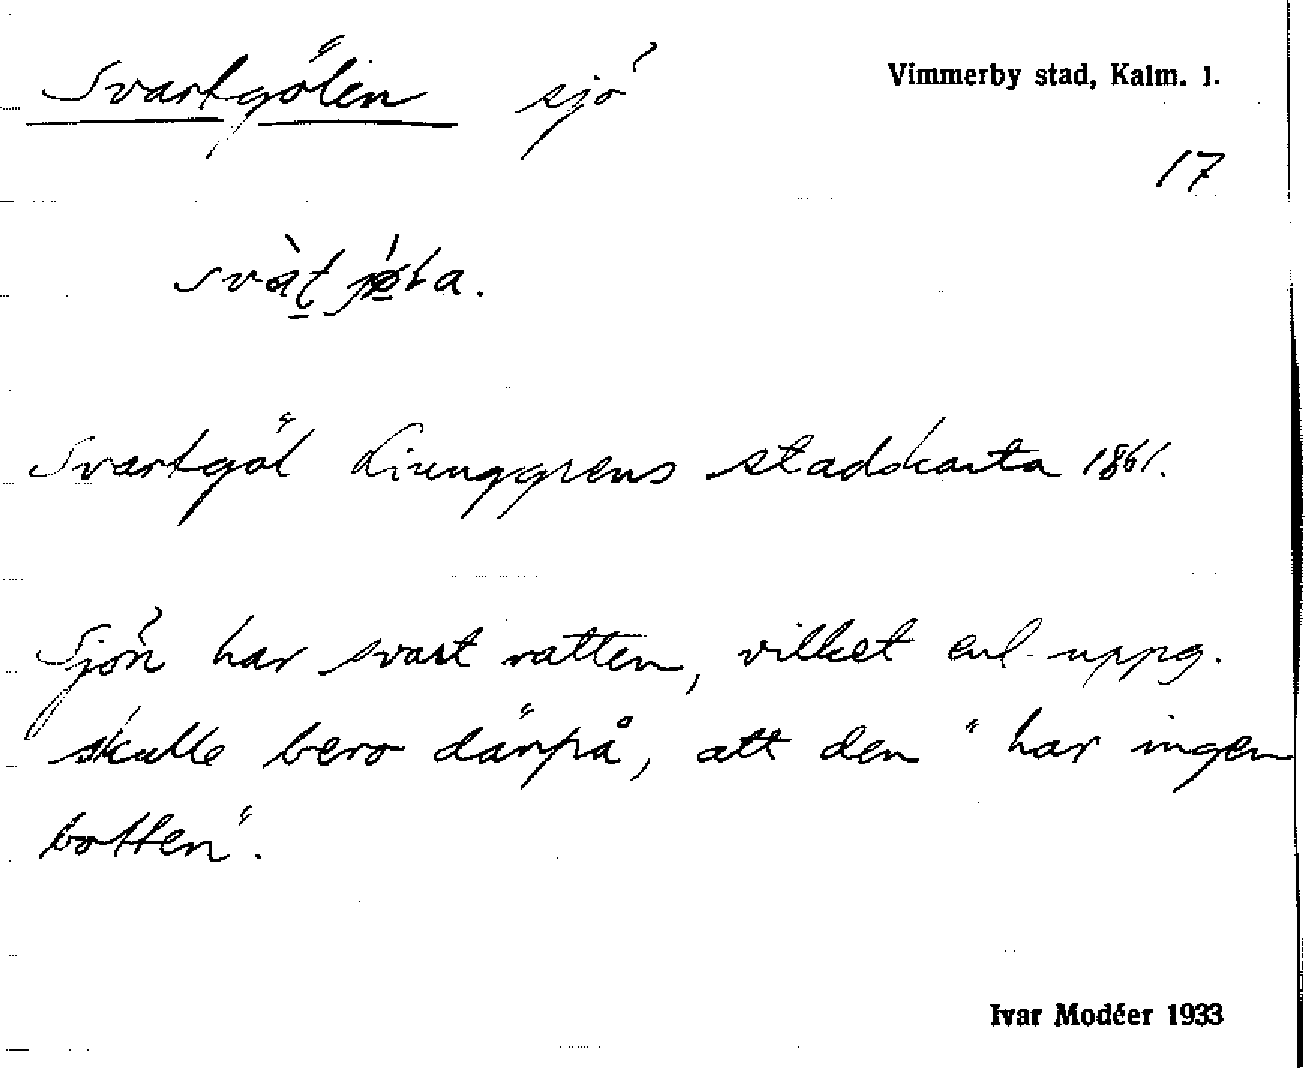 Svartgölen sjö
Vimmerby stad, Kalm. l.
17
Svartgöl Liunggrens stadskarta 1861.
Sjön har svart vatten, vilket enl. uppg.
skulle bero därpå, att den "har ingen
botten".
Ivar Modéer 1933